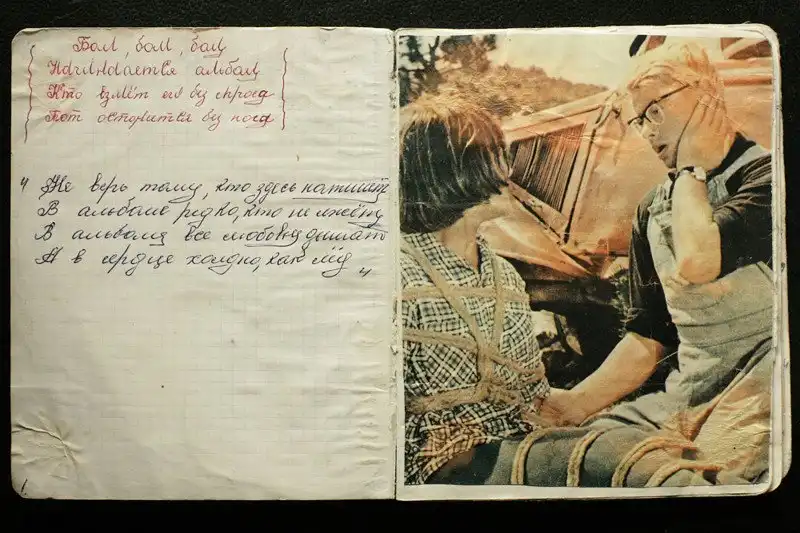 Бом, бом, бом
Начинается альбом
Кто возмёт его без спроса
Тот останется без носа
" Не верь тому, кто здесь напишет
В альбоме редко, кто не лжёт
В альбоме все любовью дышат
А в сердце холдно, как лёд "